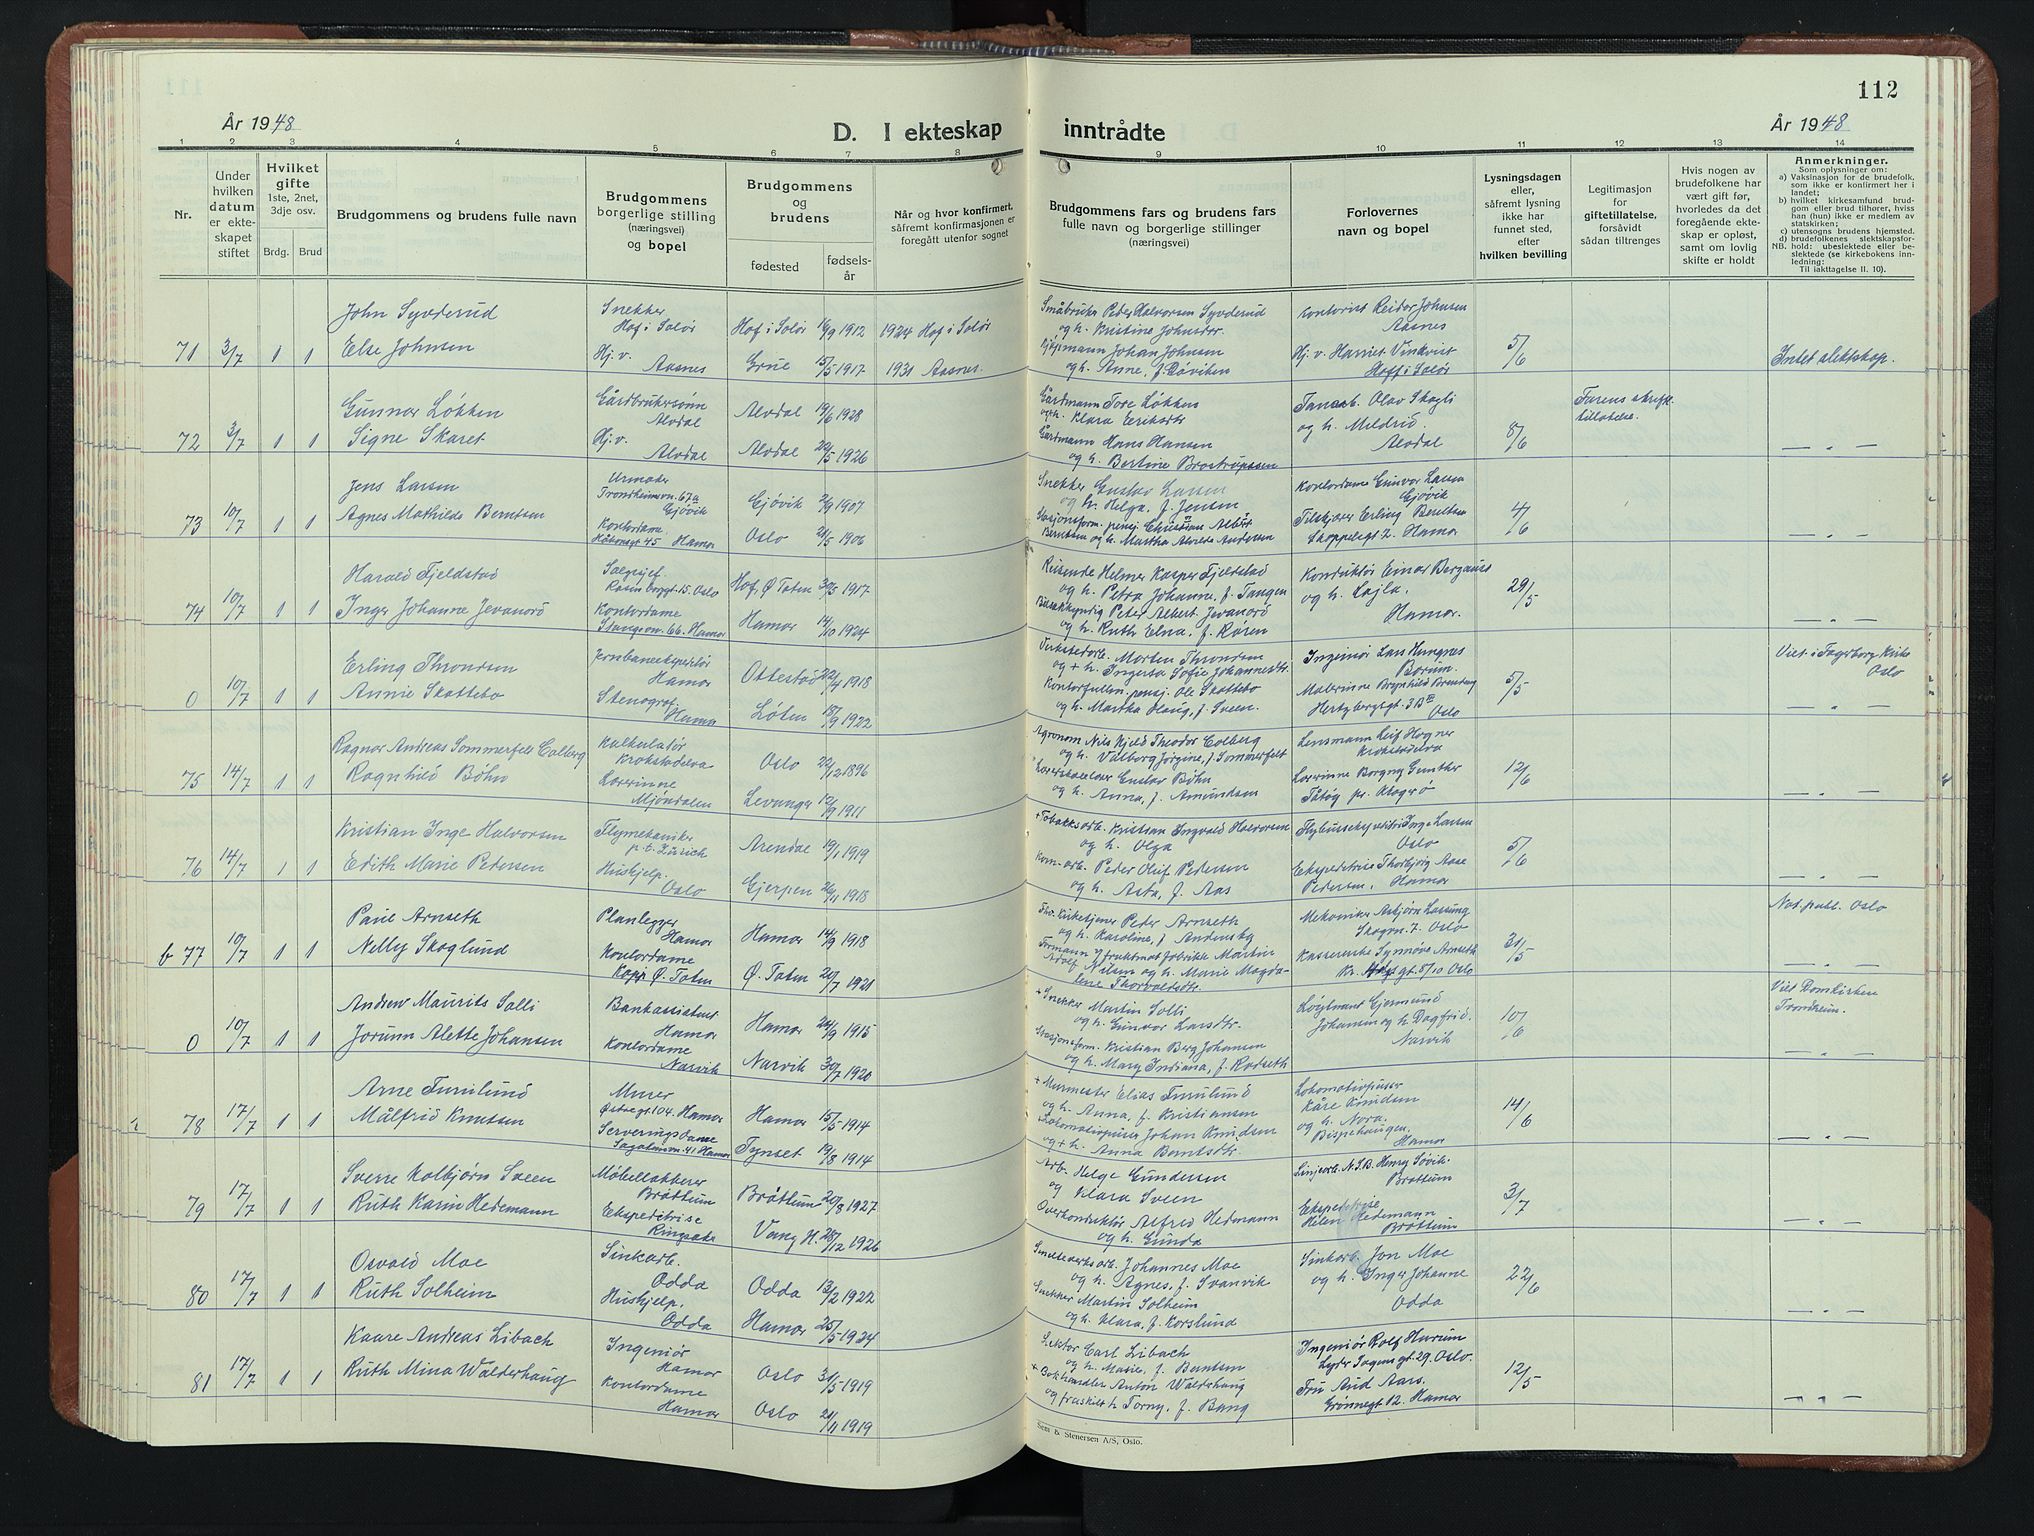 112
År 1948
D. I ekteskap inntrådte
År 1948
1 2 3 4 5 6 7 8 9 10 11 12 13 14
Nr.
Under hvilken datum er ekteskapet stiftet
Hvilket gifte 1ste, 2net, 3dje osv.
Brdg. Brud
Brudgommens og brudens fulle navn
Brudgommens borgerlige stilling (næringsvei) og bopel
Brudgommens og brudens
fødested
fødselsår
Når og hvor konfirmert, såfremt konfirmasjonen er foregått utenfor sognet
Brudgommens fars og brudens fars fulle navn og borgerlige stillinger (næringsvei)
Forlovernes navn og bopel
Lysningsdagen eller, såfremt lysning ikke har funnet sted, efter hvilken bevilling
Legitimasjon for giftetillatelse, forsåvidt sådan tiltrenges
Hvis nogen av brudefolkene har vært gift før, hvorledes da det foregående ekteskap er opløst, samt om lovlig skifte er holdt
Anmerkninger.
Som oplysninger om:
a) Vaksinasjon for de brudefolk, som ikke er konfirmert her i landet;
b) hvilket kirkesamfund brudgom eller brud tilhører, hviss han (hun) ikke er medlem av statskirken;
c) utensogns brudens hjemsted.
d) brudefolkenes slektskapsforhold: ubeslektede eller beslektede (se kirkebokens innledning:
NB.
Til iakttagelse II. 10).
71 3/7 1 1
John Syvderud
Else Johnsen
Snekker
Hof i Solør
Hj. v.
Aasnes
Hof i Solør 16/9 1912
Grue 15/5 1917
1924 Hof i Solør
1931 Aasnes.
Småbruker Peder Halvorsen Syvderud
og h. Kristine Johnsdtr.
Johan Johnsen
og h. Anne, f.
Kontorist Reidar Johnsen
Aasnes
Hj. v. Harriet Vinkvist
Hoff i Solør
5/6
Intet slektskap.
72 3/7 1 1
Gunnar Løkken
Signe Skaret
Gårdbrukersønn
Alvdal
Hj. v.
Alvdal
Alvdal 19/6 1928
Alvdal 20/5 1926
Gårdmann Tore Løkken
og h. Klara Eriksdtr
Gårdmann Hans Hansen
og h. Bertine Brostrupssen
Olav Skogli
og h. Mildrid
Alvdal
8/6
Farens skriftl.
tillatelse.
— „ —
73 10/7 1 1
Jens Larsen
Agnes Mathilde Berntsen
Urmaker
Trondheimsvn. 67a
Gjøvik
Kontordame
Håkonsgt 45 Hamar
Gjøvik 2/9 1907
Oslo 21/5 1906
Snekker Gustav Larsen
og h. Helga, f. Jensen
Stasjonsform. pensj. Christian Albert
Berntsen og h. Martha Alvilde Andersen
Kontordame Gunvor Larsen
Gjøvik
Erling Berntsen
Skappelsgt 2. Hamar
4/6
— „ —
74 10/7 1 1
Harald Fjeldstad
Inger Johanne Jevanord
Salgssjef.
Rosenborggt. 15. Oslo
Kontordame
Stangevn. 66. Hamar
Hof, Ø. Toten 30/5 1917
Hamar 14/10 1924
Reisende Helmer Kasper Fjeldstad
og h. Petra Johanne, f. Tangen
Peter Albert Jevanord
og h. Ruth Elna, f. Røren
Konduktør Einar
og h. Lajla.
Hamar.
29/5
— „ —
0 10/7 1 1
Erling Throndsen
Annie Skattebo
Jernbaneekspeditør
Hamar
Stenograf.
Hamar
Ottestad 22/4 1918
Løten 15/9 1922
Verkstedarb. Morten Throndsen
og + h. Ingerta Sofie Johannesdtr.
Kontorfullm. pensj. Ole Skattebo
og h. Martha Haug, f. Sveen.
Ingeniør Lars Hungnes
Bærum.
Malerinne Brynhild
Hertzbergsgt. 3 B
Oslo
5/5
Viet i Fagerborg Kirke
Oslo
— „ —
75 14/7 1 1
Ragnar Andreas Sommerfelt Colberg
Ragnhild Bøhn
Kalkulatør
Krokstadelva
Lærerinne
Mjøndalen
Oslo 22/12 1896
Levanger 12/9 1911
Agronom Nils Kjeld Theodor Colberg
og h. Valborg Jørgine, f. Sommerfelt
Gustav Bøhn
og h. Anna, f. Amundsen
Lensmann Leif Hagner
Krokstadelva
Lærerinne Borgny Gunther
Tåtøy pr. Kragerø
12/6
— „ —
76 14/7 1 1
Kristian Inge Halvorsen
Edith Marie Pedersen
Flymekaniker
p. t. Zürich
Hushjelp.
Oslo
Arendal 19/1 1919
Gjerpen 26/11 1918
+ Tobakksarb. Kristian Ingvald Halvorsen
og h. Olga
Kom. arb. Peder Oluf Pedersen
og h. Asta, f. Aas
Inge Larsen
Oslo
Ekspeditrise Thorbjørg Aase
Pedersen, Hamar
5/6
— „ —
b 77 10/7 1 1
Paul Arnseth
Nelly Skoglund
Planlegger
Hamar
Kontordame
Kapp Ø. Toten
Hamar 14/9 1918
Ø. Toten 20/7 1921
Kirketjener Peder Arnseth
og h. Karoline, f. Andensby
Formann v/ fruktmat fabrikk Martin
Adolf Nilsen og h. Marie Magdalene
Thorvaldsdtr.
Mekaniker Asbjørn
Skogvn. 7. Oslo
Kassererske Synnøve Arnseth
gt. 5/10 Oslo
31/5
Not. publ. Oslo
— „ —
0 10/7 1 1
Andrew Maurits Solli
Jorunn Alette Johansen
Bankassistent
Hamar
Kontordame
Narvik
Hamar 24/9 1915
Narvik 30/7 1920
+ Snekker Martin Solli
og h. Gunvor Larsdtr.
Stasjonsform. Kristian Berg Johansen
og h. Mary Indiana, f. Rødseth
Gjermund
Johansen og h. Dagfrid.
Narvik
10/6
Viet Domkirken
Trondheim.
— „ —
78 17/7 1 1
Arne Furulund
Målfrid Knutsen
Murer
Østregt 104. Hamar
Serveringsdame
Sagatunvn. 41 Hamar
Hamar 15/5 1914
Tynset 19/8 1914
+ Murmester Elias Furulund
og h. Anna, f. Kristiansen
+ Lokomotivpusser Johan Knudsen
og + h. Anna Berntsdtr.
Lokomotivpusser
Kåre Knudsen
og h. Nora.
Bispehaugen.
Hamar
14/6
— „ —
79 17/7 1 1
Sverre Kolbjørn Sveen
Ruth Karin Hedemann
Møbellakkerer
Brøttum
Ekspeditrise
Ringsaker
Brøttum 20/8 1927
Vang H. 28/12 1926
Arb. Helge Gundersen
og Klara Sveen
Overkonduktør Alfred Hedemann
og h. Gunda
Linjearb. N.S.B. Henry Søvik.
Brøttum
Ekspeditrise
Helen Hedemann
Brøttum
3/7
— „ —
80 17/7 1 1
Osvald Moe
Ruth Solheim
Sinkarb.
Odda
Hushjelp.
Odda
Odda 13/2 1922
Hamar 25/5 1924
Smelteverksarb. Johannes Moe
og h. Agnes, f. Svanvik
Snekker Martin Solheim
og h. Klara, f. Korslund
Sinkarb. Jon Moe
og h. Inger Johanne
Odda
22/6
— „ —
81 17/7 1 1
Kaare Andreas Libach
Ruth Mina Walderhaug
Ingeniør
Hamar
Kontordame
Hamar
Oslo 31/5 1919
Oslo 21/11 1919
Lektor Carl Libach
og h. Marie, f. Berntsen
+ Bokhandler Anton Walderhaug
og fraskilt h. Torny, f. Bang
Ingeniør Rolf Hurum
Lyder Sagens gt. 29. Oslo.
Fru Aud Aars.
Grønnegt 12. Hamar
12/5
— „ —
Sem & Stenersen A/S, Oslo.